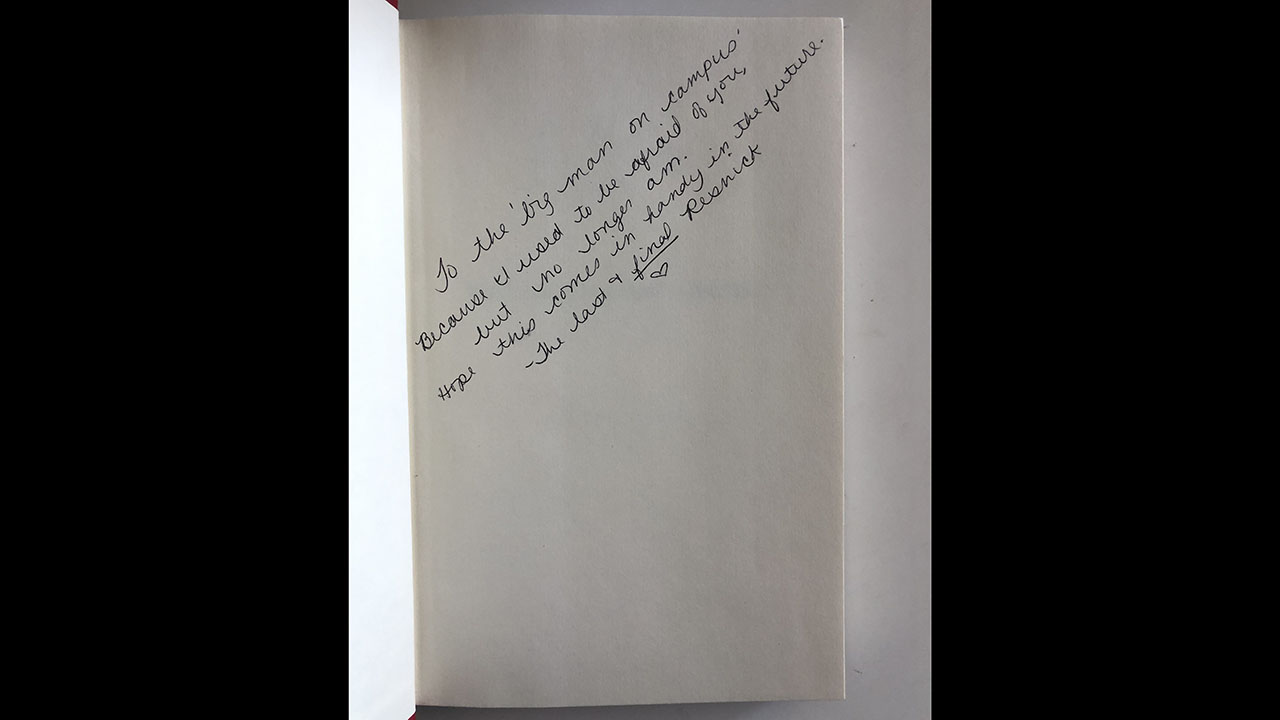 To the 'big man on campus'
Because I used to be afraid of you,
but no longer am.
Hope this comes in handy in the future.
-The last + final Resnick
♡